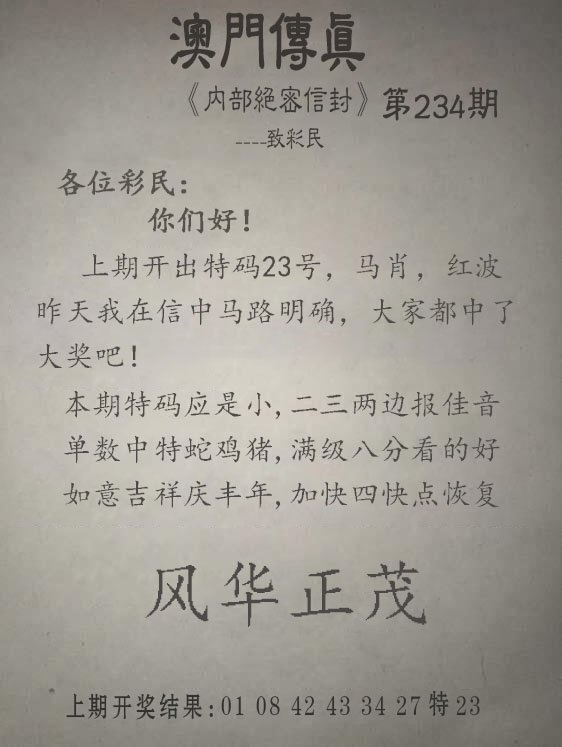 澳門傳眞
《内部絕密信封》第234期
----致彩民
各位彩民：
你们好！
上期开出特码23号，马肖，红波
昨天我在信中马路明确，大家都中了
大奖吧！
本期特码应是小,二三两边报佳音
单数中特蛇鸡猪,满级八分看的好
如意吉祥庆丰年,加快四快点恢复
风华正茂
上期开奖结果:01 08 42 43 34 27特23